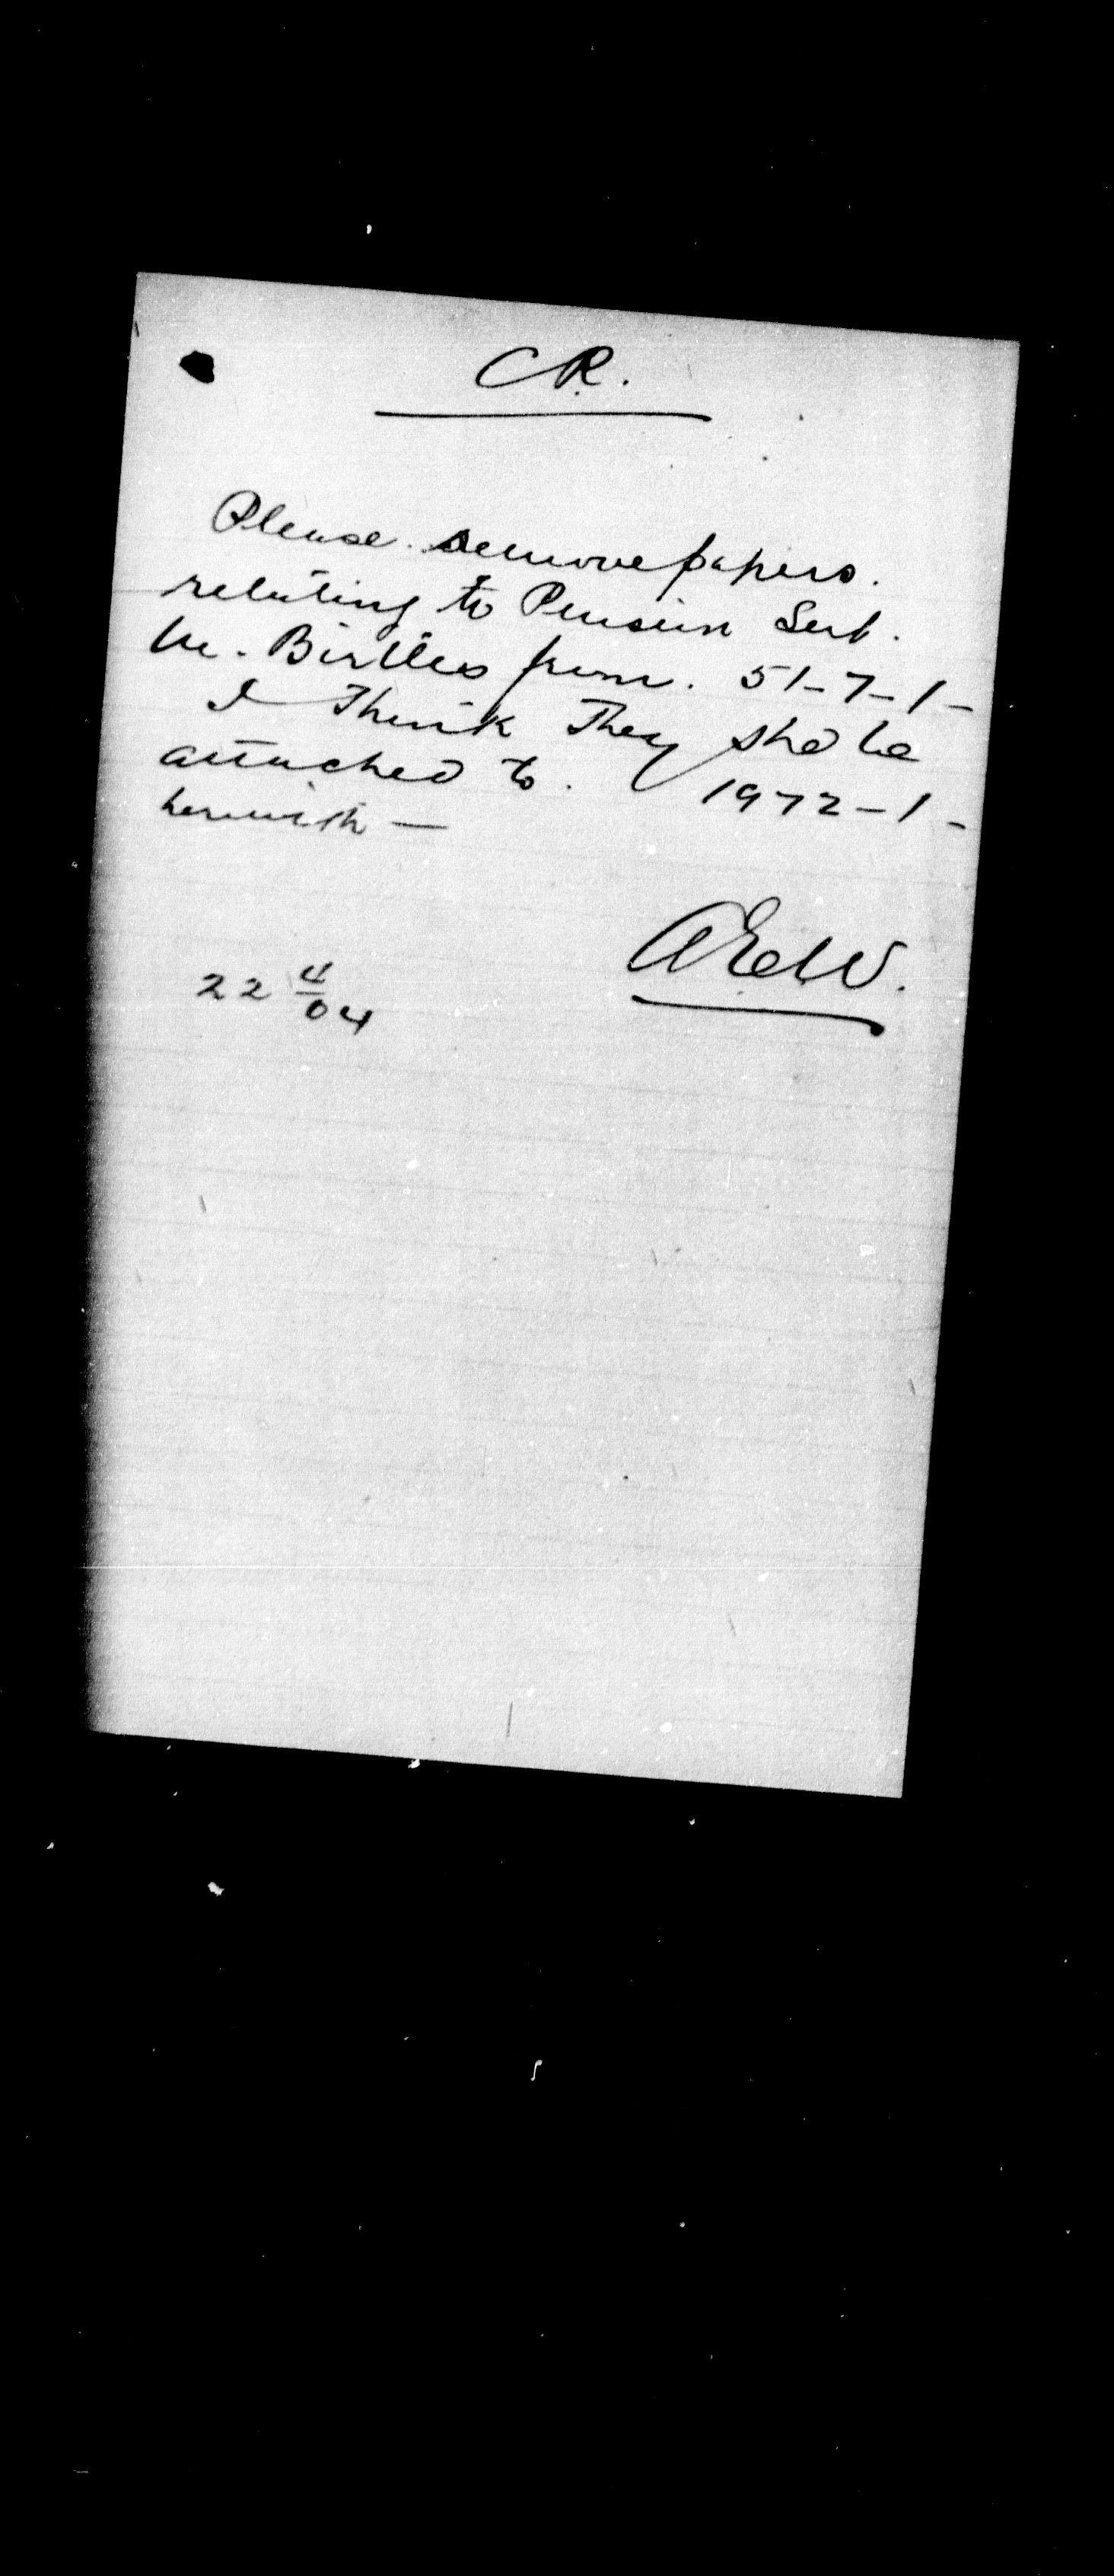 CR.
Please remove papers.
relating to Pension Sert.
Birtles from. 51-7-1-
I Think They shd be
attached to. 1972-1-
herewith —
22 4/04